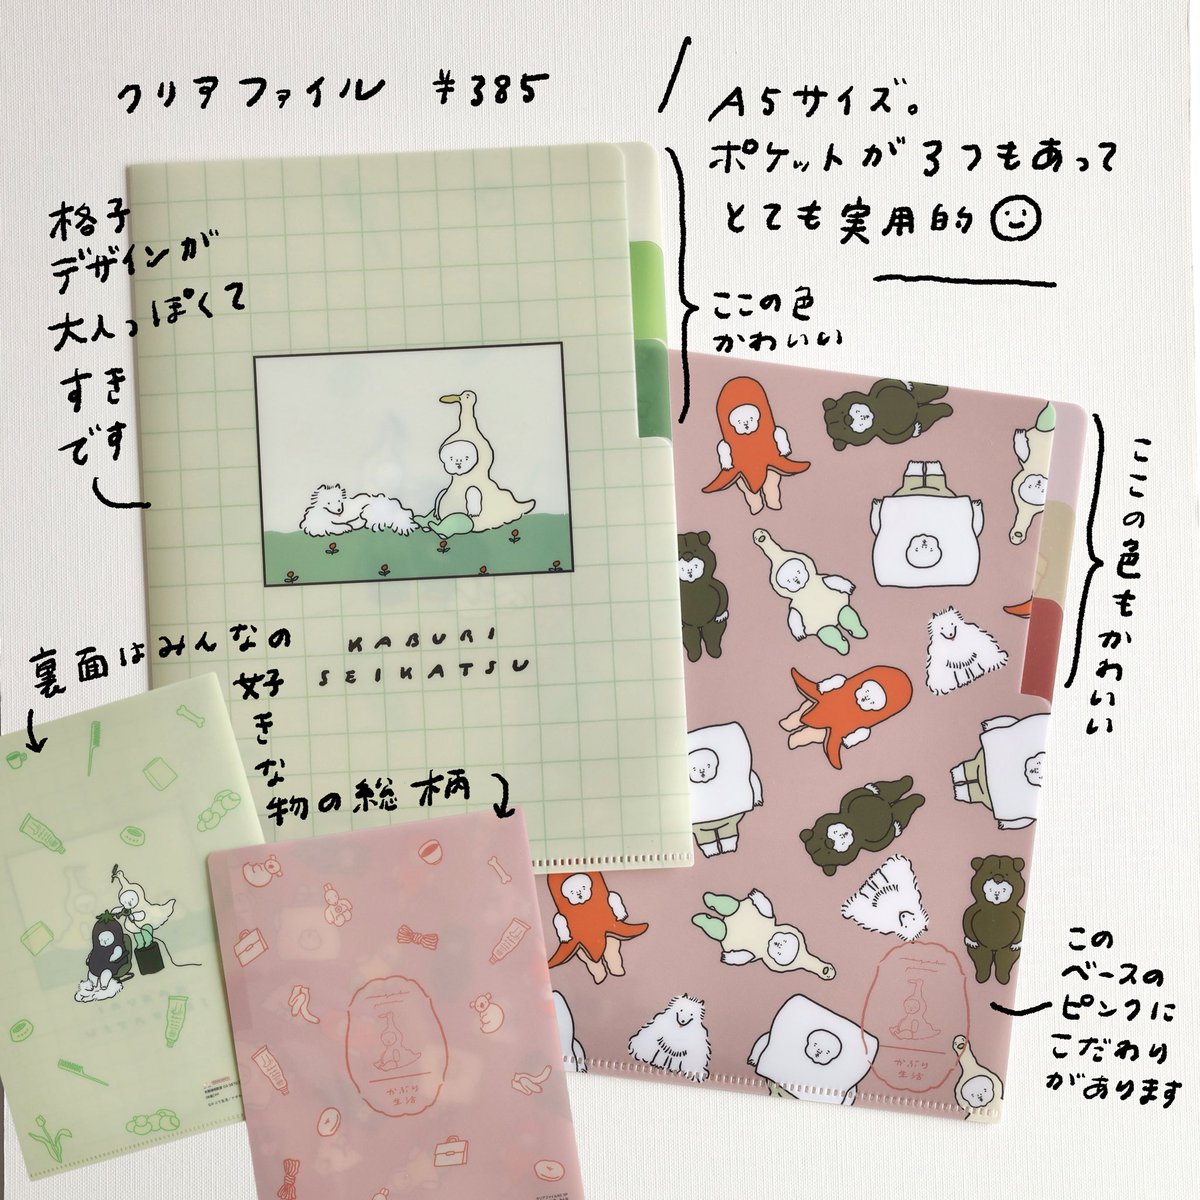 クリアファイル ¥385
A5サイズ。
ポケットが3つもあって
とても実用的
格子
デザインが
大人っぽくて
すき
です
ここの色
かわいい
ここの色もかわいい
KABURI
SEIKATSU
裏面はみんなの
好
き
な
物の総柄
この
ベースの
ピンクに
こだわり
があります
かぶり
生活
かぶり
生活